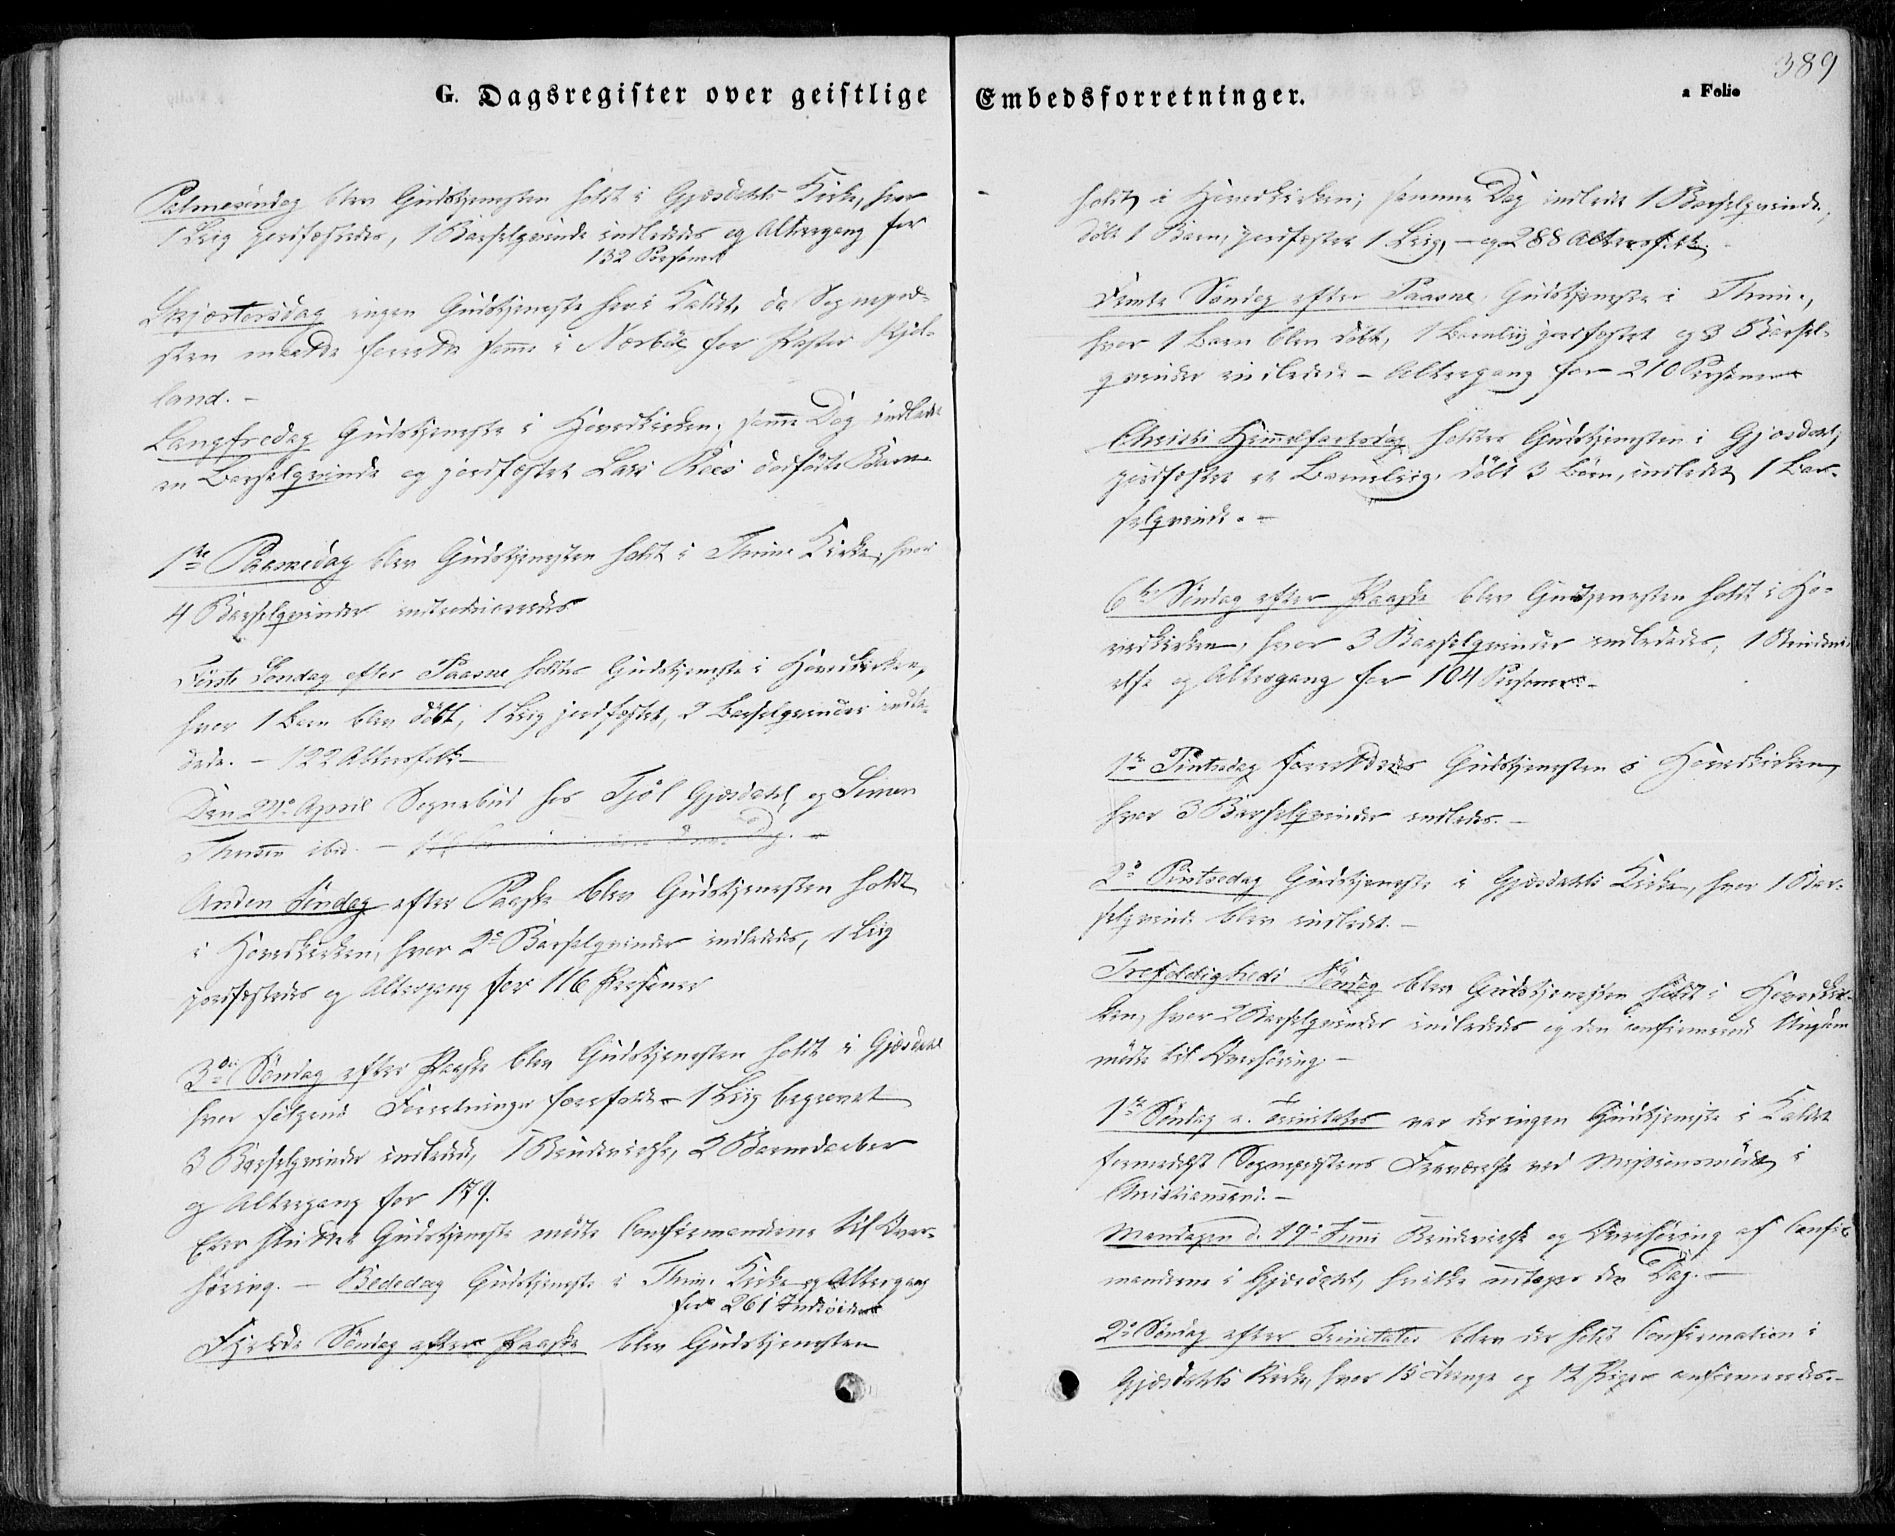 389
G. Dagsregister over geistlige Embedsforretninger.
a Folio
Palmesöndag blev Gudstjenesten holdt i Gjæsdahls Kirke, hvor
1 Liig jordfæstedes, 1 Barselqvinde indlededes og Altergang for
132 Personer
Skjærtorsdag ingen Gudstjeneste her i Kaldet, da Sognepræ-
sten maatte forrette samme i Nærböe for Pastor Kjel-
land. -
Langfredag Gudstjeneste i Hovedkirken; samme Dag indledt
en Barselqvinde og jordfæstet Lars dødfödte Barn
1ste Paaskedag blev Gudstjenesten holdt i Thime Kirke, hvor
4 Barselqvinder introduceredes
Förste Söndag efter Paaske holdtes Gudstjeneste i Hovedkirken,
hvor 1 Barn blev döbt, 1 Liig jordfæstet, 2 Barselqvinder indle-
dede. - 122 Altersfolk -
Den 24de April Sognebud hos Gjæsdahl og Simon
ibid. -
Anden Söndag efter Paaske blev Gudstjenesten holdt
i Hovedkirken, hvor 2de Barselqvinder indlededes, 1 Liig
jordfæstedes og Altergang for 116 Personer
3die Söndag efter Paaske blev Gudstjenesten holdt i Gjæsdahl
hvor fölgende Forretninger forefaldt - 1 Liig begravet
3 Barselqvinder indledede, 1 Brudevielse, 2 Barnedaaber
og Altergang for 179.
Efter sluttet Gudstjeneste mödte Confirmanderne til Over-
höring. - Bededag Gudstjeneste i Thime Kirke og Altergang
for 261 Individer
Fjerde Söndag efter Paaske blev Gudstjenesten
holdt i Hovedkirken; samme Dag indledt 1 Barselqvinde,
döbt 1 Barn, jordfæstet 1 Liig, - og 288 Altersfolk. -
Femte Söndag efter Paaske, Gudstjeneste i Thime,
hvor 1 Barn blev döbt, 1 Barnliig jordfæstet og 3 Barsel-
qvinder indledede - Altergang for 210 Personer
Christi Himmelfartsdag holdtes Gudstjenesten i Gjæsdahl,
jordfæstet et Barneliig, döbt 3 Börn, indledet 1 Bar-
selqvinde. -
6te Söndag efter Paaske blev Gudstjenesten holdt i Ho-
vedkirken, hvor 3 Barselqvinder indlededes, 1 Brudevi-
else og Altergang for 104 Personer. -
1ste Pintsedag forrettedes Gudstjenesten i Hovedkirken,
hvor 3 Barselqvinder indledes. -
2den Pintsedag Gudstjeneste i Gjæsdahls Kirke, hvor 1 Bar-
selqvinde blev indledet. -
Trefoldigheds Söndag blev Gudstjenesten holdt i Hovedkir-
ken, hvor 2 Barselqvinder indlededes og den confirmerende Ungdom
mödte til Overhöring. -
1ste Söndag e. Trinitatis var der ingen Gudstjeneste i Kaldet
formedelst Sognepræstens Fraværelse ved Missionsmöde i
Christianssand. -
Mandagen d. 19de Juni Brudevielse og Overhöring af Confir-
manderne i Gjæsdahl, hvilke antages den Dag. -
2den Söndag efter Trinitatis blev der holdt Confirmation i
Gjæsdahls Kirke, hvor 15 Drenge og 12 Piger confirmeredes. -